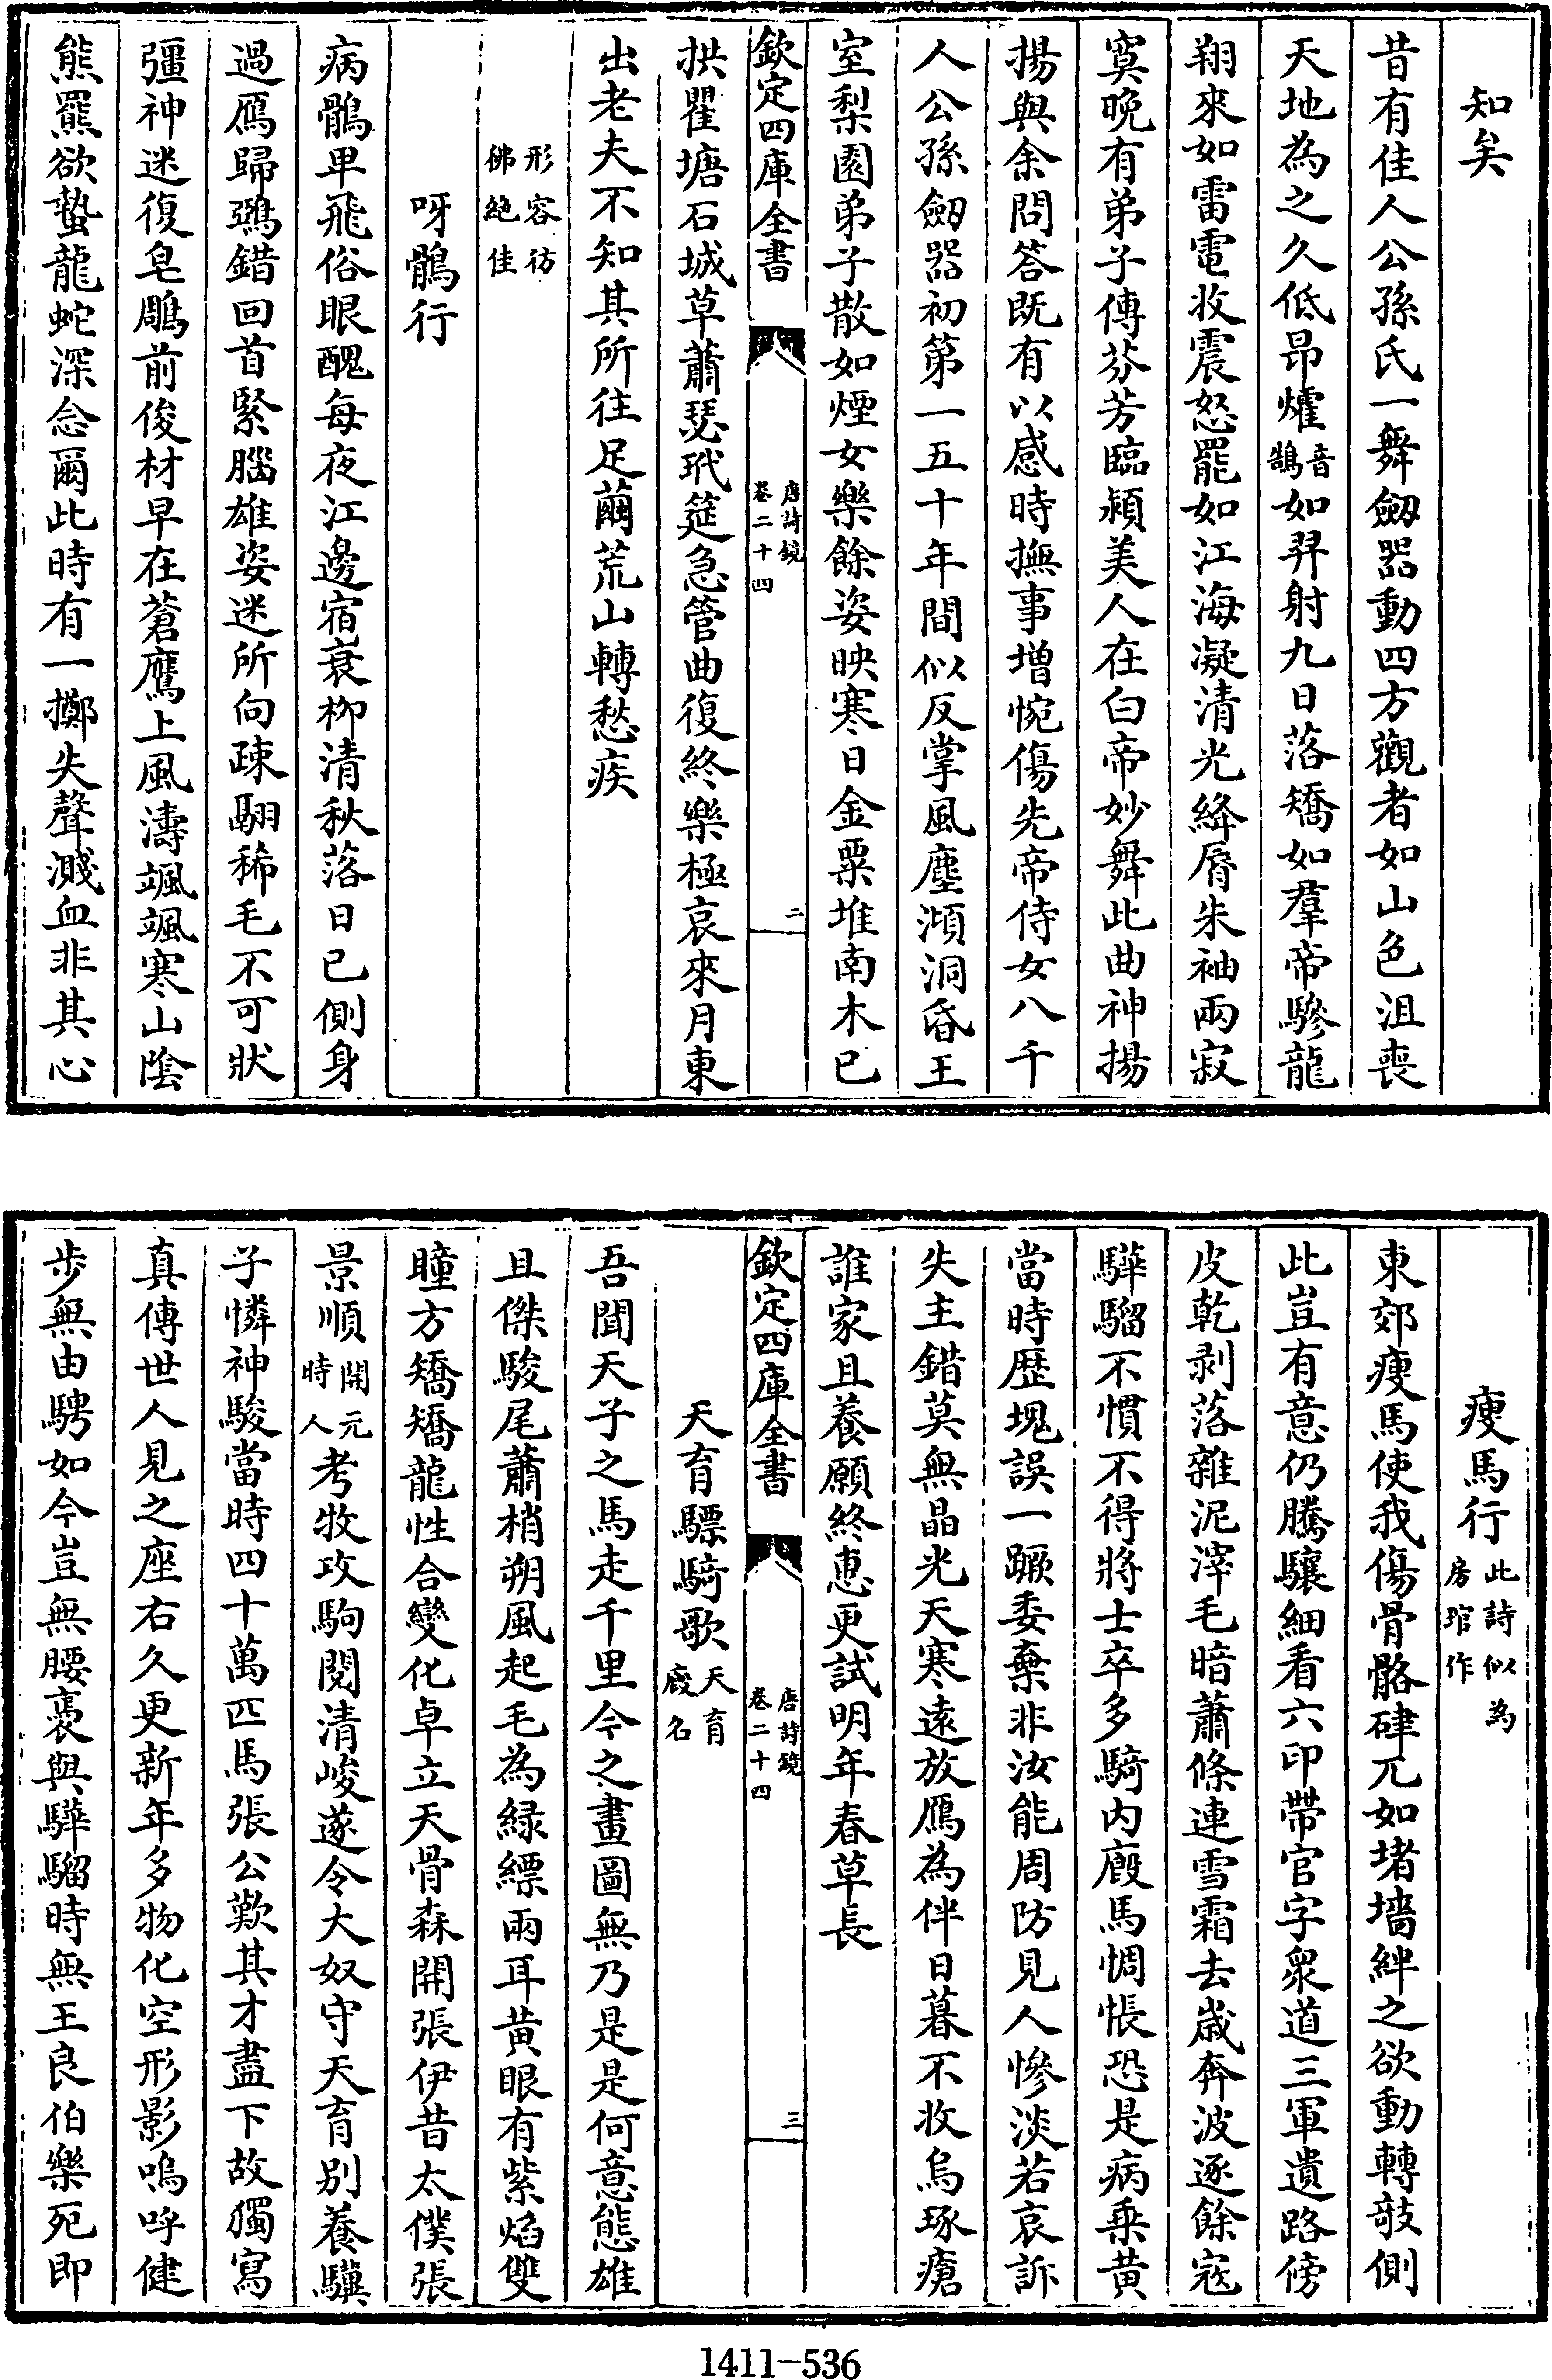 知矣
昔有佳人公孫氏一舞劒器動四方觀者如山色沮喪
天地為之久低昻㸌音鵠如羿射九日落矯如羣帝驂龍
翔來如雷電收震怒罷如江海凝清光絳脣朱袖兩寂
寞晚有弟子傳芬芳臨潁美人在白帝妙舞此曲神揚
揚與余問答既有以感時撫事增惋傷先帝侍女八千
人公孫劒器初第一五十年間似反掌風塵澒洞昏王
室梨園弟子散如煙女樂餘姿映寒日金粟堆南木已
欽定四庫全書 唐詩鏡卷二十四 二
拱瞿塘石城草蕭瑟玳筵急管曲復終樂極哀來月東
出老夫不知其所往足繭荒山轉愁疾
形容彷彿絶佳
呀鶻行
病鶻卑飛俗眼醜每夜江邊宿衰柳清秋落日已側身
過鴈歸鵶錯回首緊腦雄姿迷所向疎翮稀毛不可狀
彊神迷復皂雕前俊材早在蒼鷹上風濤颯颯寒山陰
熊羆欲蟄龍蛇深念爾此時有一擲失聲濺血非其心
瘦馬行此詩似為房琯作
東郊瘦馬使我傷骨骼硉兀如堵墻絆之欲動轉欹側
此豈有意仍騰驤細看六印帶官字衆道三軍遺路傍
皮乾剥落雜泥滓毛暗蕭條連雪霜去嵗奔波逐餘寇
驊騮不慣不得將士卒多騎内廐馬惆悵恐是病乗黄
當時歴塊誤一蹶委棄非汝能周防見人慘淡若哀訴
失主錯莫無晶光天寒遠放鴈為伴日暮不收烏琢瘡
誰家且養願終惠更試明年春草長
欽定四庫全書 唐詩鏡卷二十四 三
天育驃騎歌天育廐名
吾聞天子之馬走千里今之畫圖無乃是是何意態雄
且傑駿尾蕭梢朔風起毛為緑縹兩耳黄眼有紫焰雙
瞳方矯矯龍性合變化卓立天骨森開張伊昔太僕張
景順開元時人考牧攻駒閲清峻遂令大奴守天育别養驥
子憐神駿當時四十萬匹馬張公歎其才盡下故獨寫
真傳世人見之座右久更新年多物化空形影嗚呼健
步無由騁如今豈無騕褭與驊騮時無王良伯樂死即
1411-536